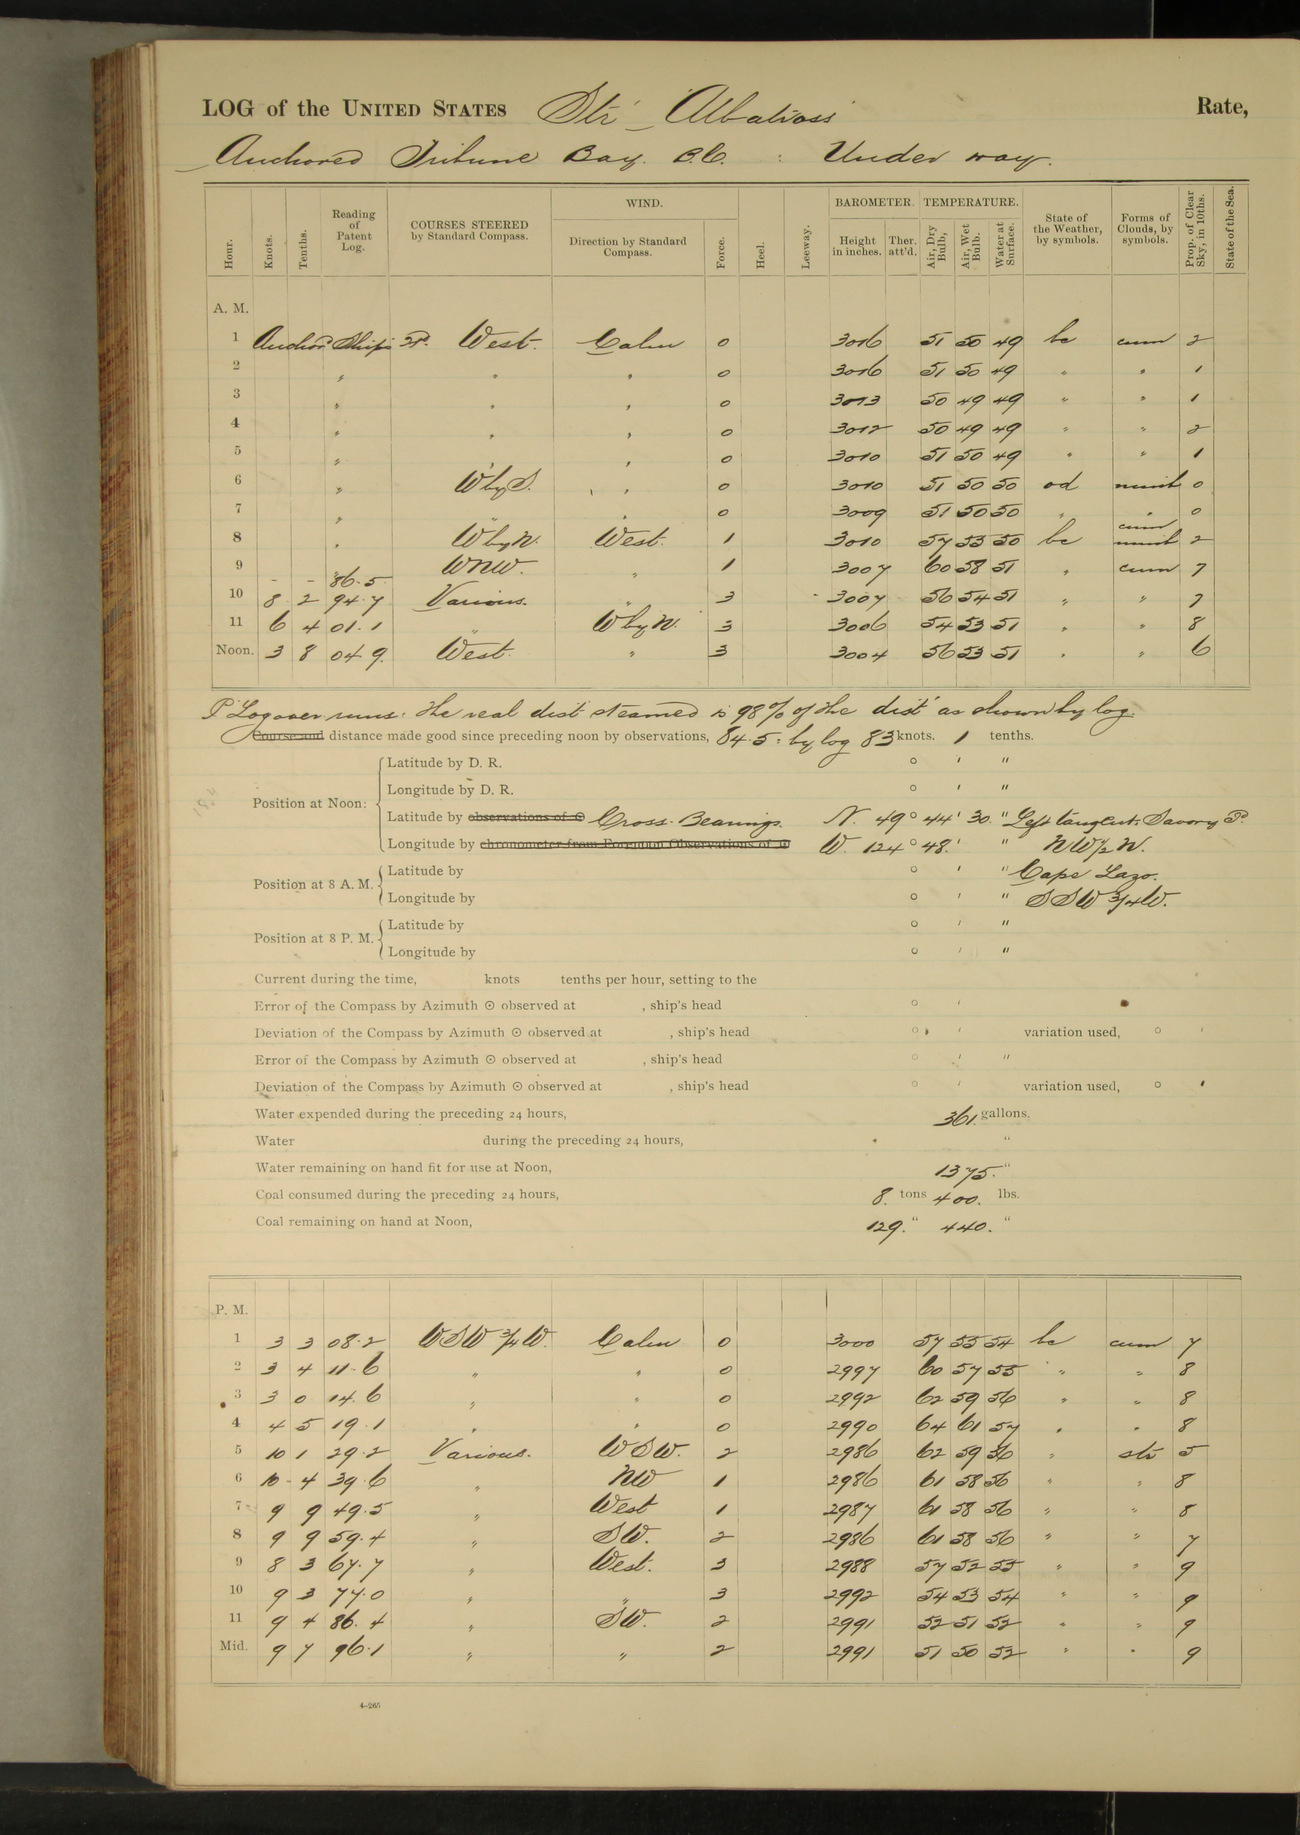 LOG of the UNITED STATES Str Albatross Rate,
Anchored Tribune Bay. B.C. : Under way.
Hour. Knots. Tenths. Reading of Patent Log. COURSES STEERED by Standard Compass. WIND. Direction by Standard Compass. Force. Heel. Leeway. BAROMETER. Height in inches. Ther. att'd. TEMPERATURE. Air, Dry Bulb. Air, Wet Bulb. Water at Surface. State of the Weather, by symbols. Forms of Clouds, by symbols. Prop. of Clear Sky, in 10ths. State of the Sea.
A. M.
1 Anchor Ship's Hd. West. Calm 0 3016 51 50 49 bc cum 2
2 " " " 0 3016 51 50 49 " " 1
3 " " " 0 3013 50 49 49 " " 1
4 " " " 0 3012 50 49 49 " " 2
5 " " " 0 3010 51 50 49 " " 1
6 " W by S. " 0 3010 51 50 50 od nimb 0
7 " " " 0 3009 51 50 50 " " 0
8 " W by N. West. 1 3010 57 53 50 bc cum nimb 2
9 - - 86.5 WNW. " 1 3007 60 58 51 " cum 7
10 8 2 94.7 Various. " 3 3007 56 54 51 " " 7
11 6 4 01.1 " W by N. 3 3006 54 53 51 " " 8
Noon. 3 8 04 9. West. " 3 3004 56 53 51 " " 6
P Log over runs: the real dist steamed is 98% of the dist as shown by log.
Course and distance made good since preceding noon by observations, 84.5: by log 83 knots. 1 tenths.
Latitude by D. R. ° ' "
Longitude by D. R. ° ' "
Position at Noon:
Latitude by observations of ☉ Cross. Bearings. N. 49° 44' 30. " Left tangent. Savory Id.
Longitude by chronometer from Forenoon Observations of ☉ W. 124° 48.' " NW ½ N.
Position at 8 A. M. Latitude by ° ' " Cape Lazo.
Longitude by ° ' " SSW ¾ W.
Position at 8 P. M. Latitude by ° ' "
Longitude by ° ' "
Current during the time, knots tenths per hour, setting to the
Error of the Compass by Azimuth ☉ observed at , ship's head ° '
Deviation of the Compass by Azimuth ☉ observed at , ship's head ° ' variation used, ° '
Error of the Compass by Azimuth ☉ observed at , ship's head ° ' "
Deviation of the Compass by Azimuth ☉ observed at , ship's head ° ' variation used, ° '
Water expended during the preceding 24 hours, 361. gallons.
Water during the preceding 24 hours, "
Water remaining on hand fit for use at Noon, 1375. "
Coal consumed during the preceding 24 hours, 8. tons 400. lbs.
Coal remaining on hand at Noon, 129. " 440. "
P. M.
1 3 3 08.2 WSW ¾ W. Calm 0 3000 57 55 54 bc cum 7
2 3 4 11.6 " " 0 2997 60 57 55 " " 8
3 3 0 14.6 " " 0 2992 62 59 56 " " 8
4 4 5 19.1 " " 0 2990 64 61 57 " " 8
5 10 1 29.2 Various. WSW. 2 2986 62 59 56 " str 5
6 10 4 39.6 " NW 1 2986 61 58 56 " " 8
7 9 9 49.5 " West 1 2987 61 58 56 " " 8
8 9 9 59.4 " SW. 2 2986 61 58 56 " " 7
9 8 3 67.7 " West. 3 2988 57 52 55 " " 9
10 9 3 77.0 " " 3 2992 54 53 54 " " 9
11 9 4 86.4 " SW. 2 2991 52 51 52 " " 9
Mid. 9 7 96.1 " " 2 2991 51 50 52 " " 9
4-265